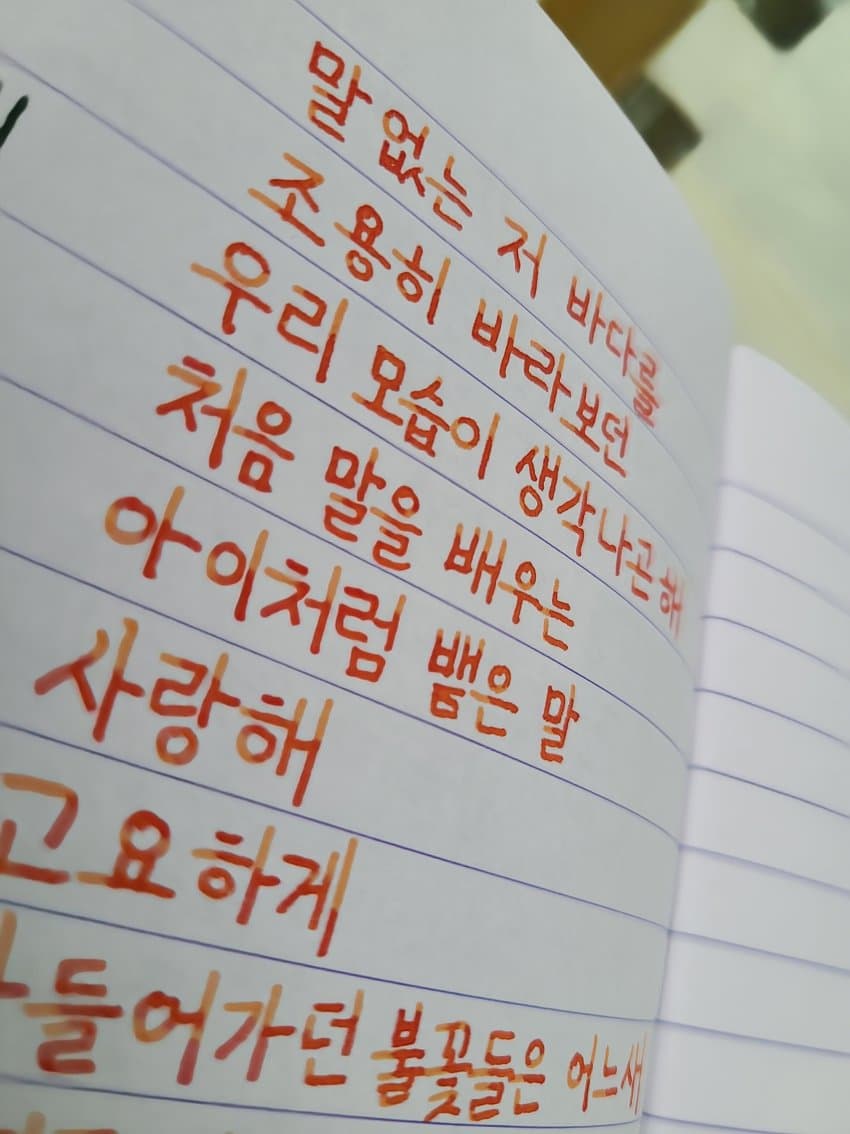 말 없는 저 바다를
조용히 바라보던
우리 모습이 생각나곤 해
처음 말을 배우는
아이처럼 뱉은 말
사랑해
고요하게
들어가던 불꽃들은 어느새